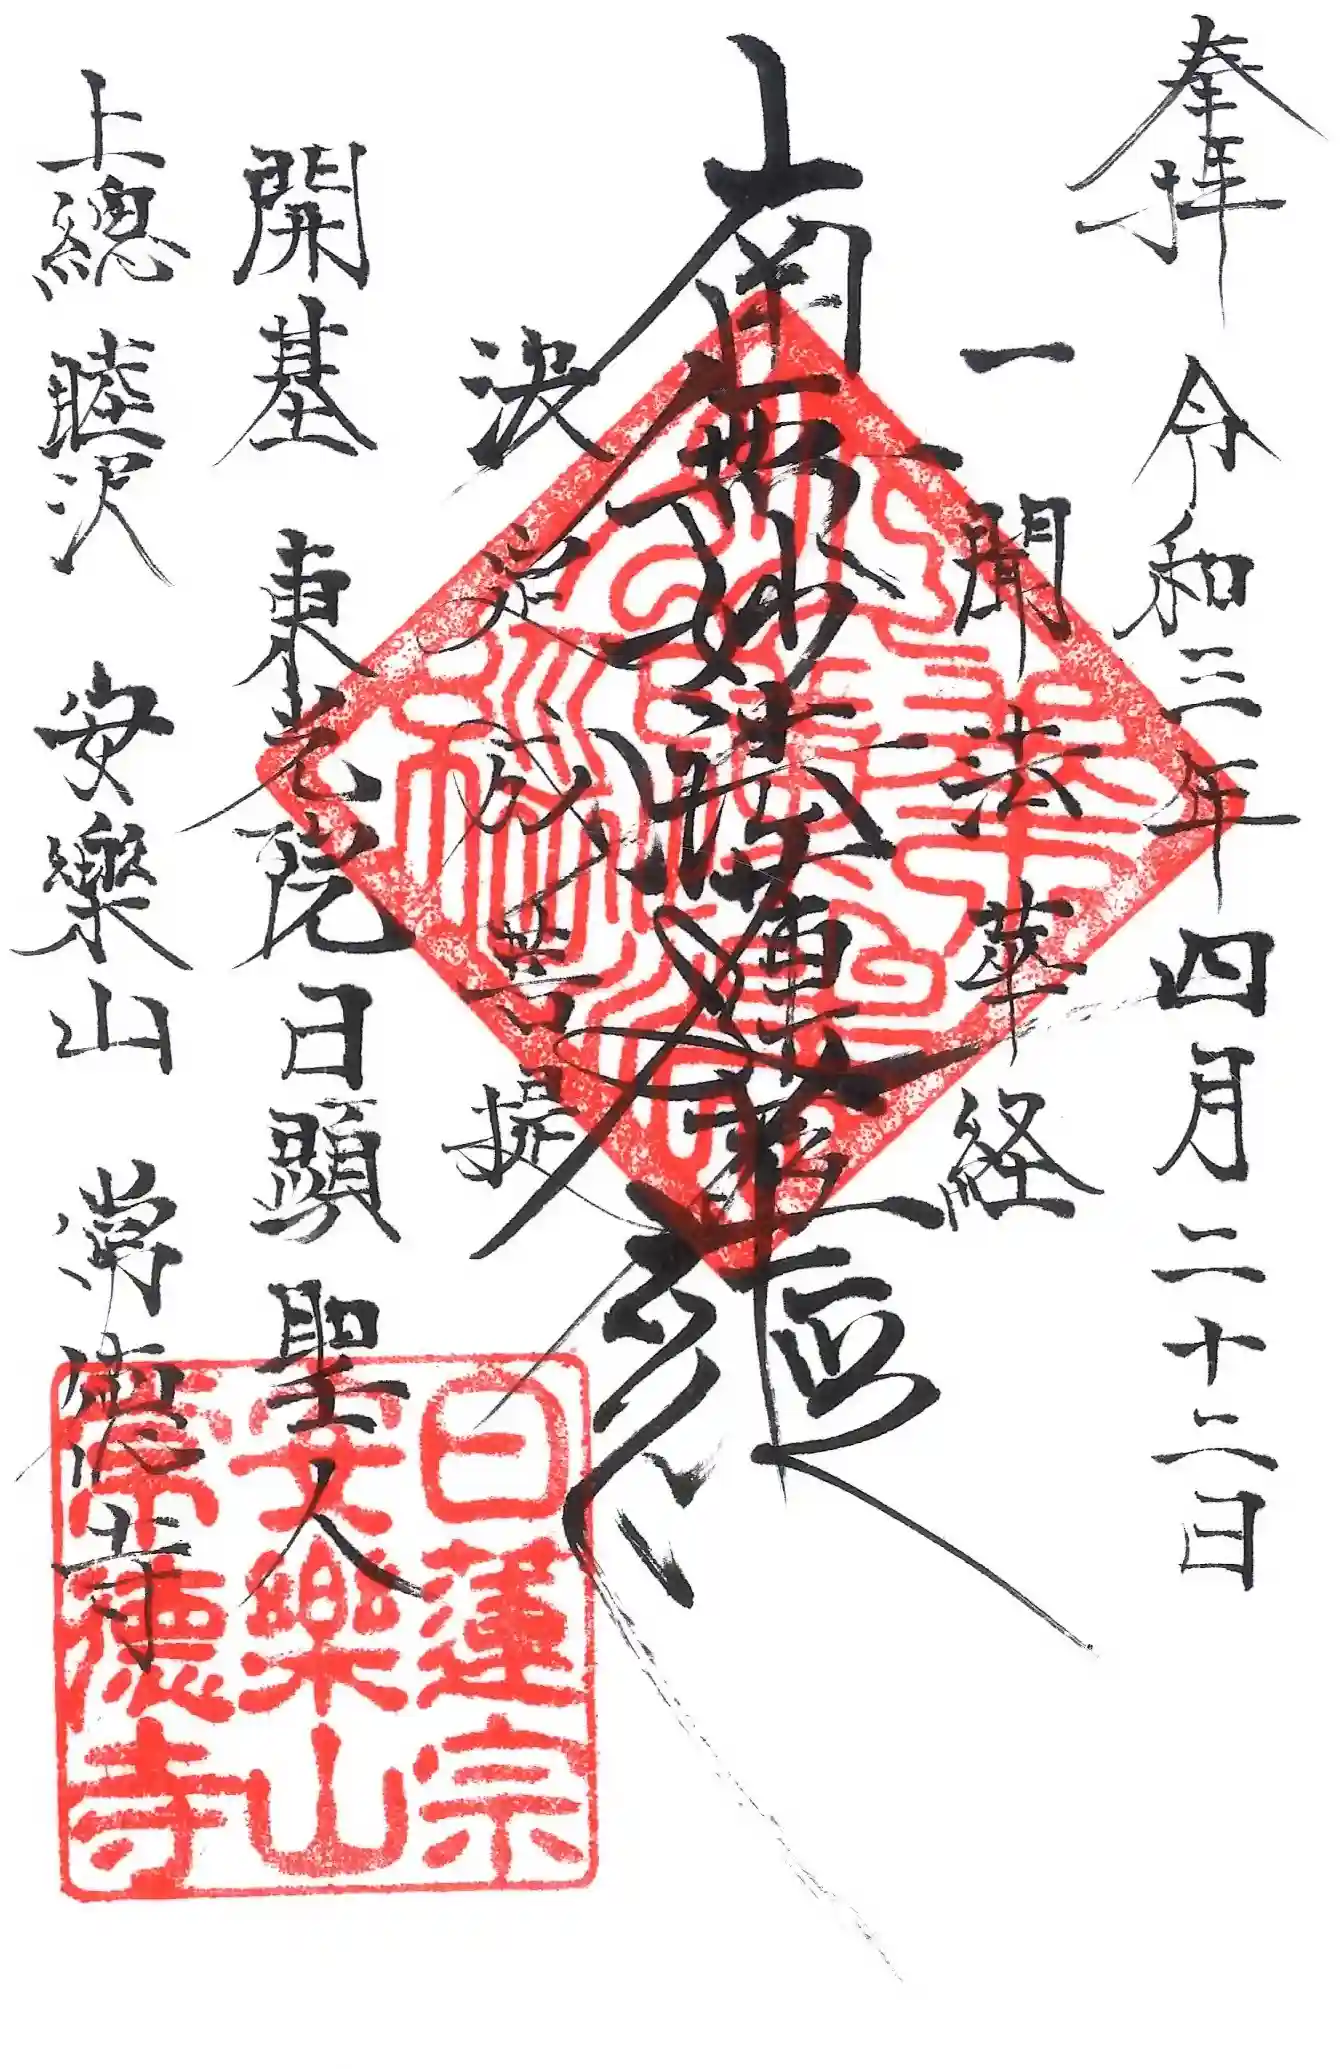 奉拝 令和三年四月二十二日
一聞法華経
南無妙法蓮華經
決定成菩提
開基 東光院日顕聖人
上總 睦沢 安樂山 常徳寺
日蓮宗
安樂山
常徳寺